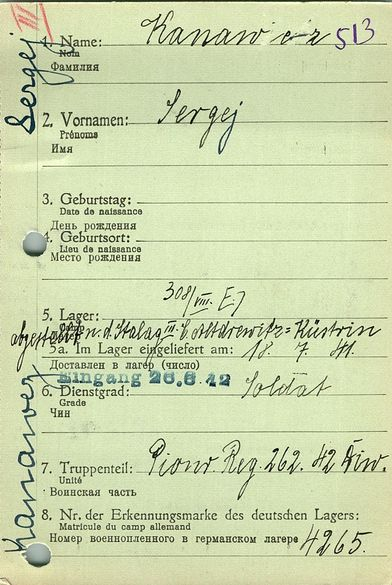 III
Sergej
Kanawez
1. Name: Kanawez 513
Nom
Фамилия
2. Vornamen: Sergej
Prénoms
Имя
3. Geburtstag:
Date de naissance
День рождения
4. Geburtsort:
Lieu de naissance
Место рождения
308/VIII. E.)
5. Lager:
Camp
n. d. Stalag III C Altdrewitz=Küstrin
5a. Im Lager eingeliefert am: 18. 7. 41.
Доставлен в лагер (число)
Eingang 26.8.42
6. Dienstgrad: Soldat
Grade
Чин
7. Truppenteil: Pion. Reg. 262. 42 Div.
Unité
Воинская часть
8. Nr. der Erkennungsmarke des deutschen Lagers:
Matricule du camp allemand
Номер военнопленного в германском лагере 4265.